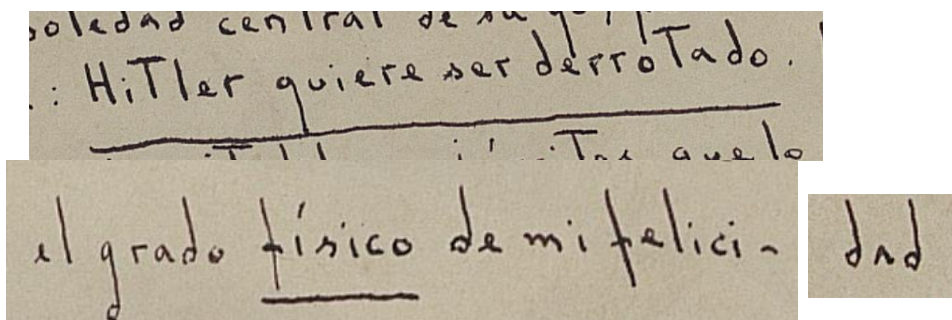 soledad central de su
Hitler quiere ser derrotado.
que lo
el grado físico de mi felici-
dad